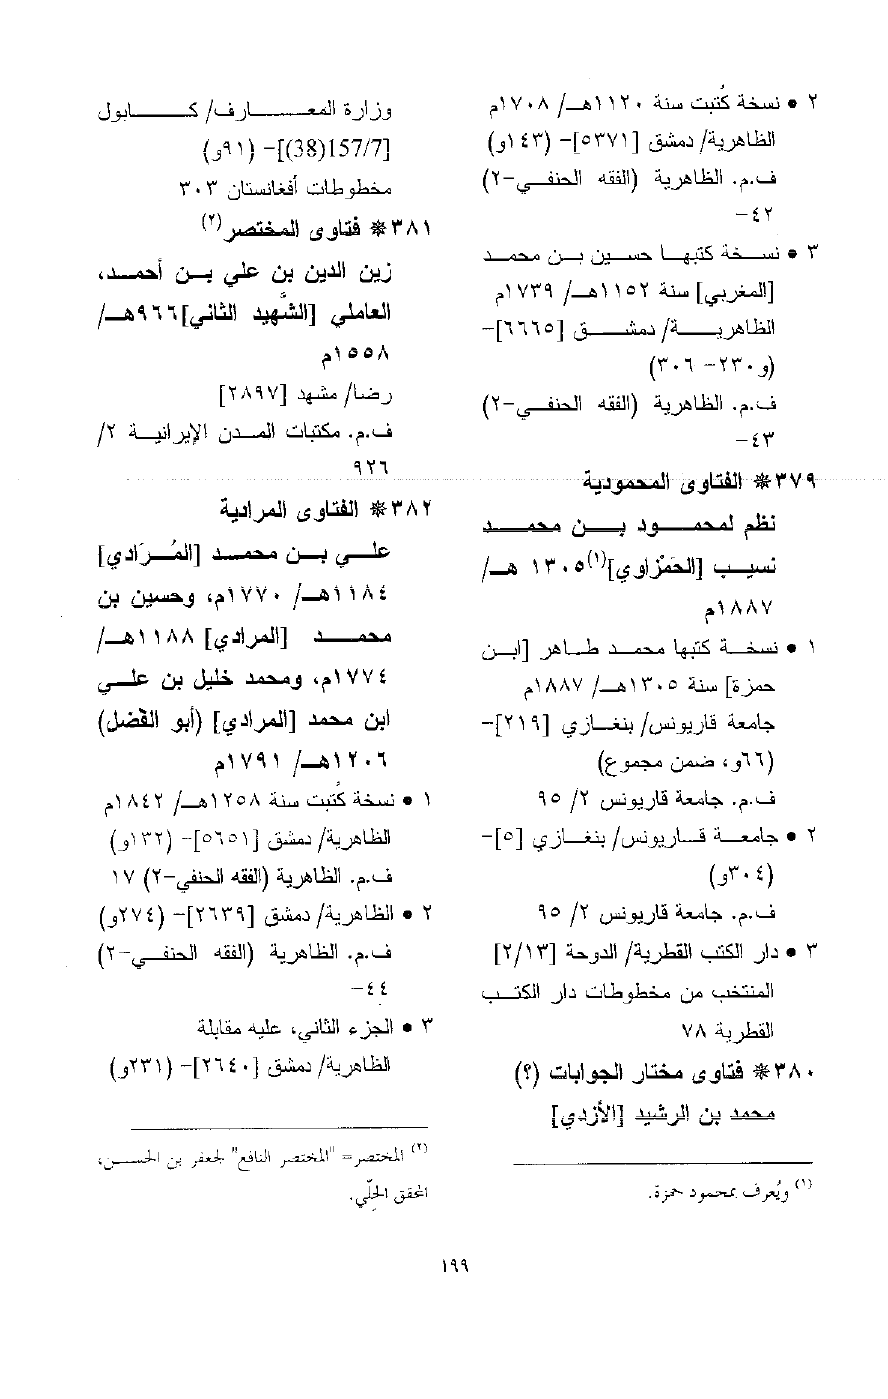 ٢ • نسخة كُتبت سنة ١١٢٠هـ/ ١٧٠٨م
الظاهرية/ دمشق [٥٣٧١]- (١٤٣و)
ف.م. الظاهرية (الفقه الحنفي-٢)
٤٢-
٣ • نسخة كتبها حسين بن محمد
[المغربي] سنة ١١٥٢هـ/ ١٧٣٩م
الظاهرية/ دمشق [٦٦٦٥]-
(و٢٣٠- ٣٠٦)
ف.م. الظاهرية (الفقه الحنفي-٢)
٤٣-
٣٧٩* الفتاوى المحمودية
نظم لمحمود بن محمد
نسيب [الحَمْزاوي](١)١٣٠٥ هـ/
١٨٨٧م
١ • نسخة كتبها محمد طاهر [ابن
حمزة] سنة ١٣٠٥هـ/ ١٨٨٧م
جامعة قاريونس/ بنغازي [٢١٩]-
(٦٦و، ضمن مجموع)
ف.م. جامعة قاريونس ٢/ ٩٥
٢ • جامعة قاريونس/ بنغازي [٥]-
(٣٠٤و)
ف.م. جامعة قاريونس ٢/ ٩٥
٣ • دار الكتب القطرية/ الدوحة [٢/١٣]
المنتخب من مخطوطات دار الكتب
القطرية ٧٨
٣٨٠* فتاوى مختار الجوابات (؟)
محمد بن الرشيد [الأزدي]
(١) ويُعرف بمحمود حمزة.
وزارة المعارف/ كابول
[157/7(38)]- (٩١و)
مخطوطات أفغانستان ٣٠٣
٣٨١* فتاوى المختصر(٢)
زين الدين بن علي بن أحمد،
العاملي [الشَّهيد الثاني]٩٦٦هـ/
١٥٥٨م
رضا/ مشهد [٢٨٩٧]
ف.م. مكتبات المدن الإيرانية ٢/
٩٢٦
٣٨٢* الفتاوى المرادية
علي بن محمد [المُرَادي]
١١٨٤هـ/ ١٧٧٠م، وحسين بن
محمد [المرادي] ١١٨٨هـ/
١٧٧٤م، ومحمد خليل بن علي
ابن محمد [المرادي] (أبو الفضل)
١٢٠٦هـ/ ١٧٩١م
١ • نسخة كُتبت سنة ١٢٥٨هـ/ ١٨٤٢م
الظاهرية/ دمشق [٥٦٥١]- (١٣٢و)
ف.م. الظاهرية (الفقه الحنفي-٢) ١٧
٢ • الظاهرية/ دمشق [٢٦٣٩]- (٢٧٤و)
ف.م. الظاهرية (الفقه الحنفي-٢)
٤٤-
٣ • الجزء الثاني، عليه مقابلة
الظاهرية/ دمشق [٢٦٤٠]- (٢٣١و)
(٢) المختصر= "المختصر النافع" لجعفر بن الحسن،
المحقق الحلّي.
١٩٩